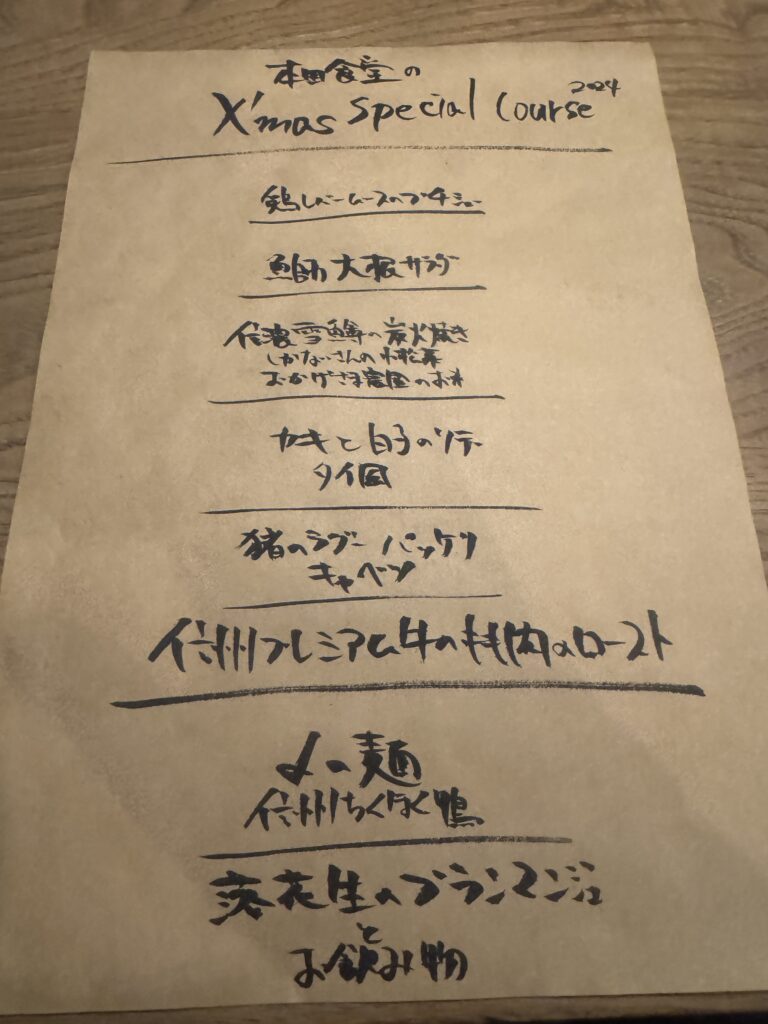 本田食堂の
X'mas Special Course 2024
鶏レバームースのプチシュー
鰤大根サラダ
信濃雪鱒の炭火焼き
しかないさんの小松菜
おかげさま農園のお米
カキと白子のソテー
タイ図
猪のラグー パッケリ
キャベツ
信州プレミアム牛のもも肉のロースト
〆の麺
信州ちくほく鴨
落花生のブランマンジェ
と
お飲み物